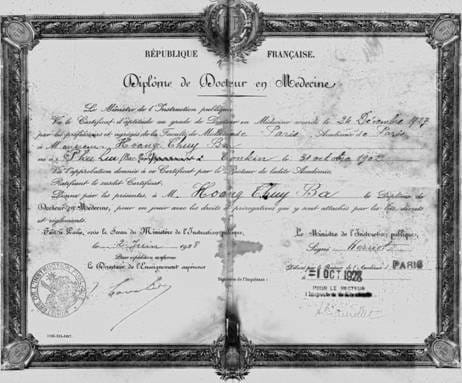 RÉPUBLIQUE FRANÇAISE.
Diplôme de Docteur en Médecine
Le Ministre de l'Instruction publique,
Vu le Certificat d'aptitude au grade de Docteur en Médecine accordé le 24 Décembre 1927
par les professeurs et agrégés de la Faculté de Médecine de Paris Académie de Paris
à Monsieur Hoang Thuy Ba
né à Tonkin le 30 octobre 1902
Vu l'approbation donnée à ce Certificat par le Recteur de ladite Académie,
Ratifiant le susdit Certificat,
Donne par les présentes, à M. Hoang Thuy Ba le Diplôme de
Docteur en Médecine, pour en jouir avec les droits et prérogatives qui y sont attachés par les lois, décrets
et règlements.
Fait à Paris, sous le Sceau du Ministère de l'Instruction publique,
le 2 Juin 1928
Pour expédition conforme
Le Directeur de l'Enseignement supérieur
Le Ministre de l'Instruction publique,
Signé Herriot
Signature de l'impétrant :
Délivré par le Recteur de l'Académie d PARIS
-1 OCT 1928
POUR LE RECTEUR